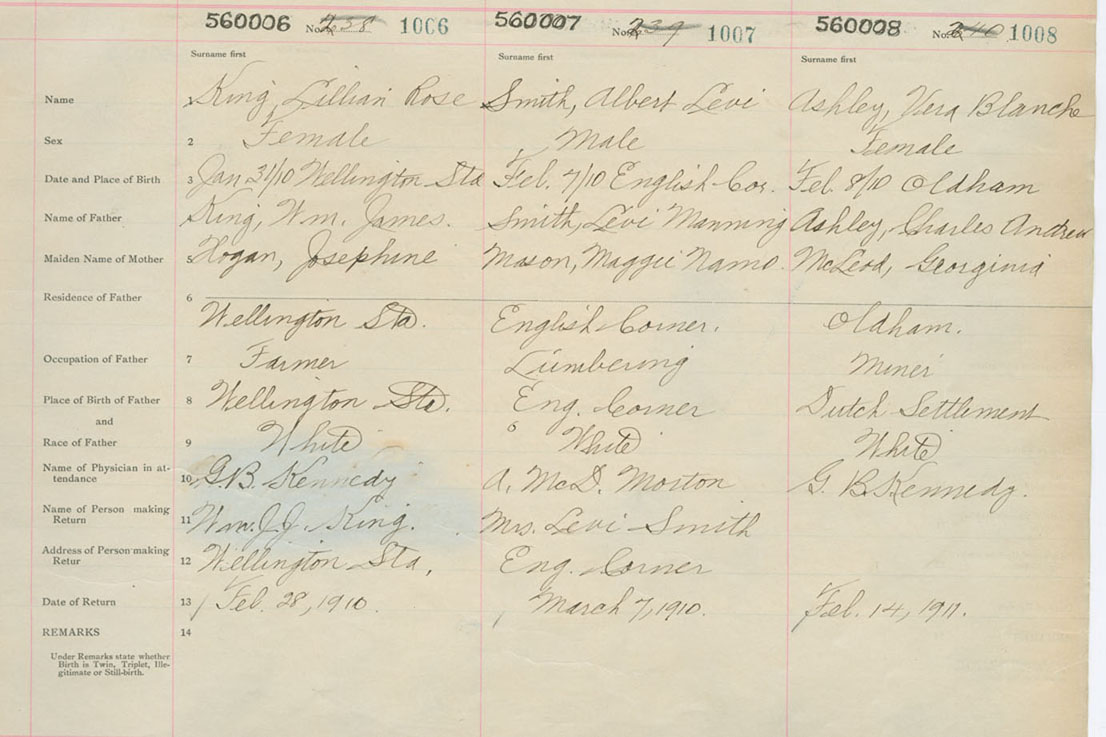 560006 No. 238 1006 560007 No. 239 1007 560008 No. 240 1008
Surname first Surname first Surname first
Name King, Lillian Rose Smith, Albert Levi Ashley, Vera Blanche
Sex 2 Female Male Female
Date and Place of Birth 3 Jan 31/10 Wellington Sta Feb. 7/10 English Cor. Feb. 8/10 Oldham
Name of Father King, Wm. James. Smith, Levi Manning Ashley, Charles Andrew
Maiden Name of Mother 5 Hogan, Josephine Mason, Maggie McLeod, Georginia
Residence of Father 6
Wellington Sta. English Corner. Oldham.
Occupation of Father 7 Farmer Lumbering Miner
Place of Birth of Father 8 Wellington Sta. Eng. Corner Dutch Settlement
and
Race of Father 9 White White White
Name of Physician in at-
tendance 10 G.B. Kennedy A. McD. Morton G. B. Kennedy.
Name of Person making
Return 11 Wm. J.J. King. Mrs. Levi Smith
Address of Person making
Retur 12 Wellington Sta, Eng. Corner
Date of Return 13 Feb. 28, 1910. March 7, 1910. Feb. 14, 1911.
REMARKS 14
Under Remarks state whether
Birth is Twin, Triplet, Ille-
gitimate or Still-birth.